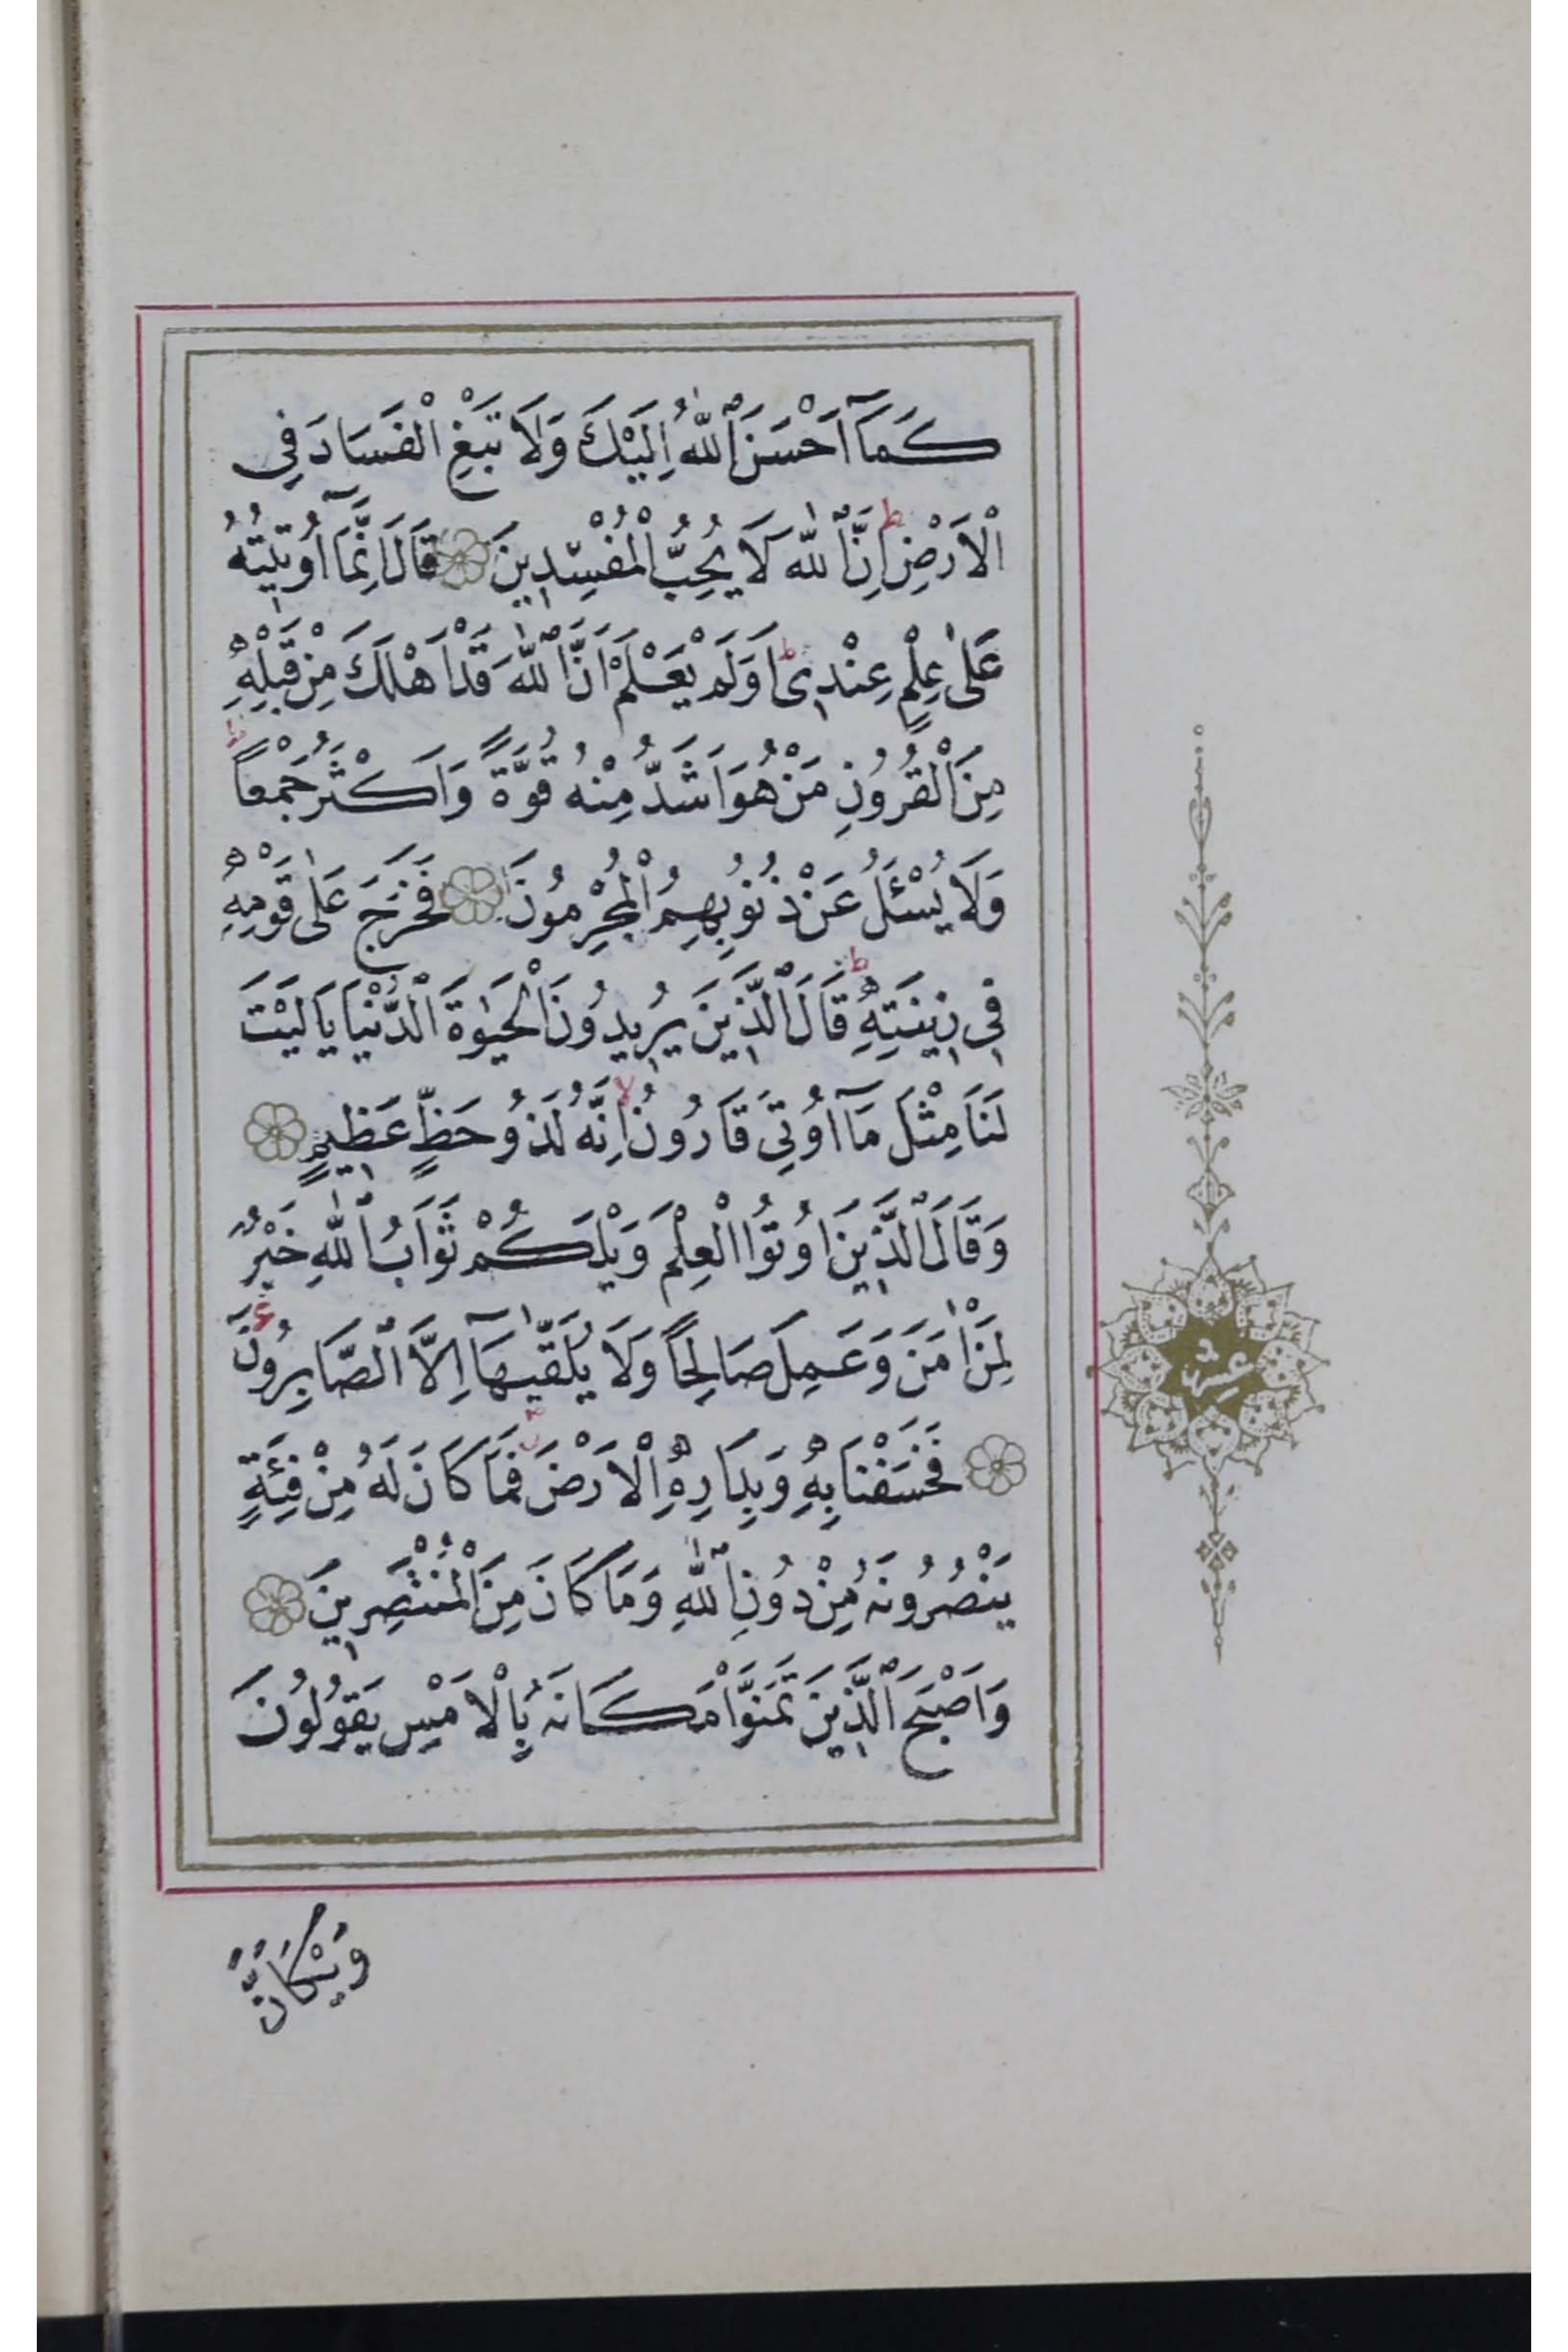 كَمَآ اَحْسَنَ ٱللّٰهُ اِلَيْكَ وَلَا تَبْغِ ٱلْفَسَادَ فِى
ٱلْاَرْضِ ط اِنَّ ٱللّٰهَ لَا يُحِبُّ ٱلْمُفْسِدِينَ قَالَ اِنَّمَآ اُوتِيتُهُ
عَلٰى عِلْمٍ عِنْدِى ط اَوَلَمْ يَعْلَمْ اَنَّ ٱللّٰهَ قَدْ اَهْلَكَ مِنْ قَبْلِهِ
مِنَ ٱلْقُرُونِ مَنْ هُوَ اَشَدُّ مِنْهُ قُوَّةً وَاَكْثَرُ جَمْعاً ط
وَلَا يُسْئَلُ عَنْ ذُنُوبِهِمُ ٱلْمُجْرِمُونَ فَخَرَجَ عَلٰى قَوْمِهِ
فِى زِينَتِهِ ط قَالَ ٱلَّذِينَ يُرِيدُونَ ٱلْحَيٰوةَ ٱلدُّنْيَا يَا لَيْتَ
لَنَا مِثْلَ مَآ اُوتِىَ قَارُونُ لا اِنَّهُ لَذُو حَظٍّ عَظِيمٍ
وَقَالَ ٱلَّذِينَ اُوتُوا ٱلْعِلْمَ وَيْلَكُمْ ثَوَابُ ٱللّٰهِ خَيْرٌ
لِمَنْ اٰمَنَ وَعَمِلَ صَالِحاً وَلَا يُلَقّٰيهَآ اِلَّا ٱلصَّابِرُونَ ع
فَخَسَفْنَا بِهِ وَبِدَارِهِ ٱلْاَرْضَ فَمَا كَانَ لَهُ مِنْ فِئَةٍ
يَنْصُرُونَهُ مِنْ دُونِ ٱللّٰهِ وَمَا كَانَ مِنَ ٱلْمُنْتَصِرِينَ
وَاَصْبَحَ ٱلَّذِينَ تَمَنَّوْا مَكَانَهُ بِٱلْاَمْسِ يَقُولُونَ
وَيْكَاَنَّ
عشر